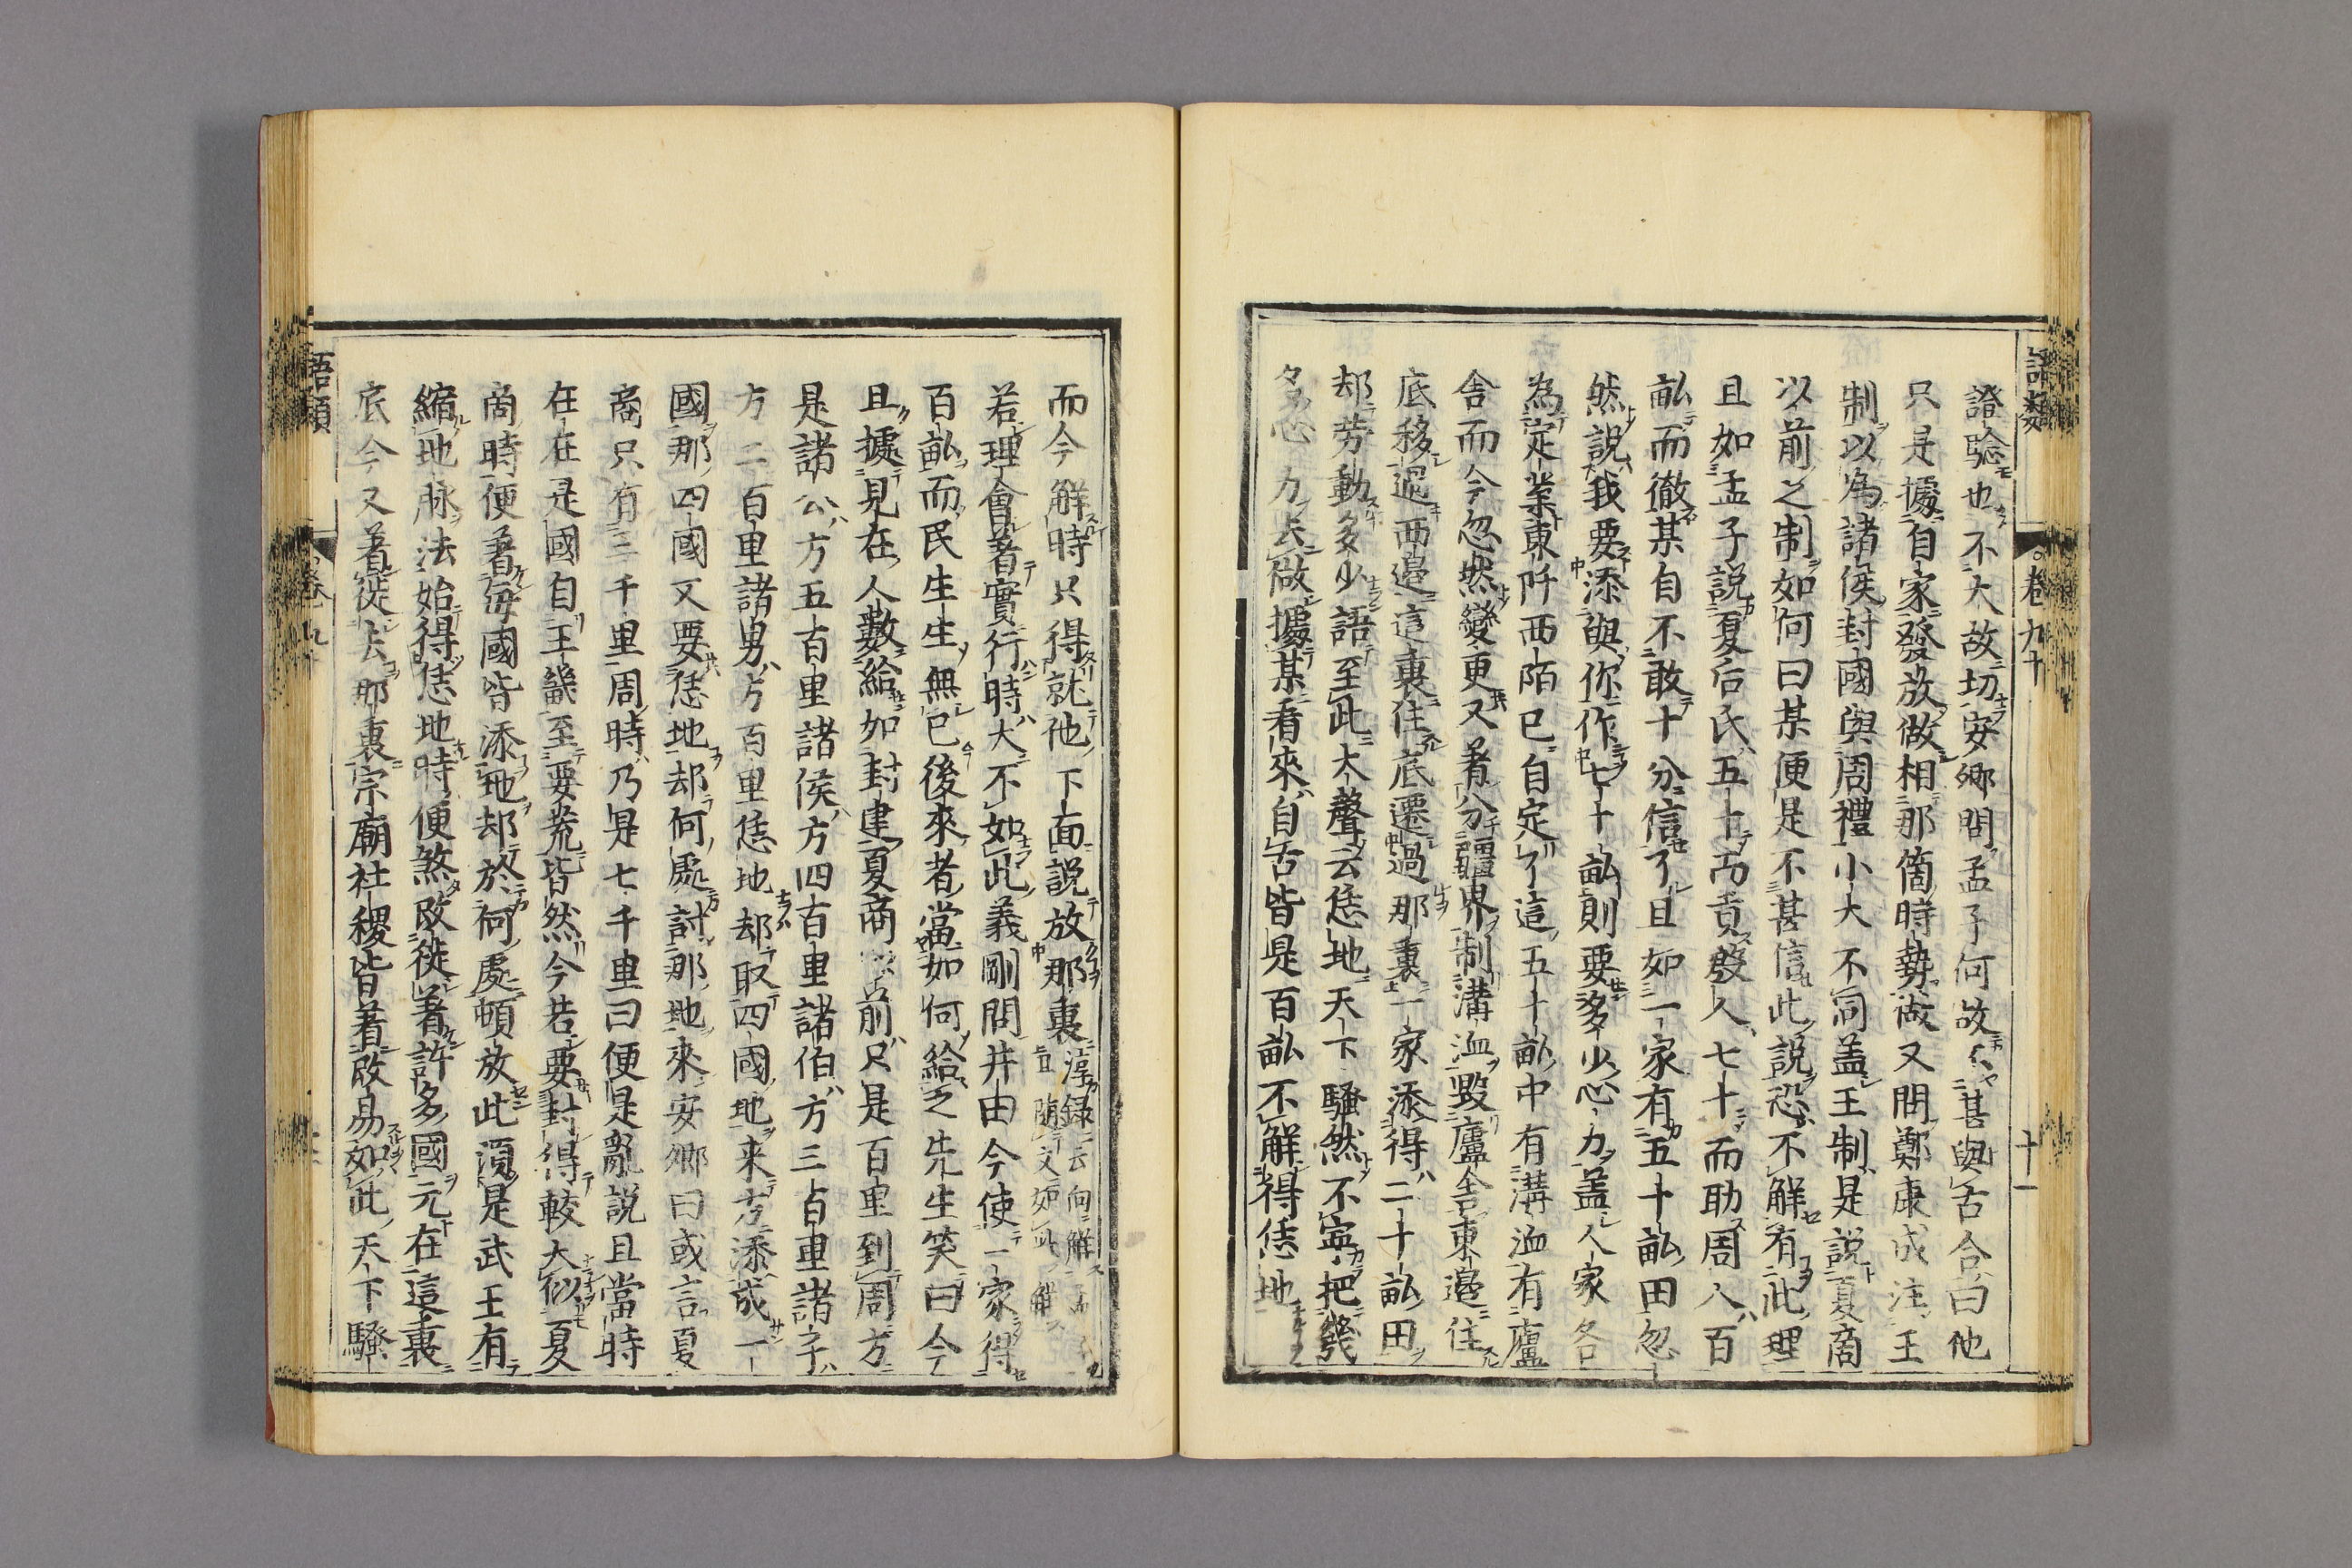 語類
卷九十
十一
證驗也不大故切安卿問孟子何故不甚與古合曰他
只是據自家發放做相那箇時勢做又問鄭康成注王
制以為諸侯封國與周禮小大不同盖王制是說夏商
以前之制如何曰某便是不甚信此說恐不解有此理
且如孟子說夏后氏五十而貢殷人七十而助周人百
畒而徹某自不敢十分信了且如一家有五十畒田忽
然說我要添與你作七十畒則要多少心力盖人家各
為定業東阡西陌已自定了這五十畒中有溝洫有廬
舍而今忽然變更又著分疆界制溝洫毀廬舍東邉住
底移過西邉這裏住底遷過那裏一家添得二十畒田
却劳動多少語至此大聲云恁地天下騷然不寧把幾
多心力去做據某看來自古皆是百畒不解得恁地
而今解時只得就他下面說放那裏淳録云向解
且隨文如此解
若理會著實行時大不如此義剛問井田今使一家得
百畒而民生生無已後來者當如何給之先生笑曰今
且據見在人數給如封建夏商以前只是百里到周方
是諸公方五百里諸侯方四百里諸伯方三百里諸子
方二百里諸男方百里恁地却取四國地来方添成一
國那四國又要恁地却何處討那地來安卿曰或言夏
商只有三千里周時乃是七千里曰便是亂說且當時
在在是國自王畿至要荒皆然今若要封得較大似夏
商時便著每國皆添地却於何處頓放此須是武王有
縮地脉法始得恁地時便煞改徙著許多國元在這裏
底今又著徙去那裏宗廟社稷皆著改易如此天下騷
語類
卷九十